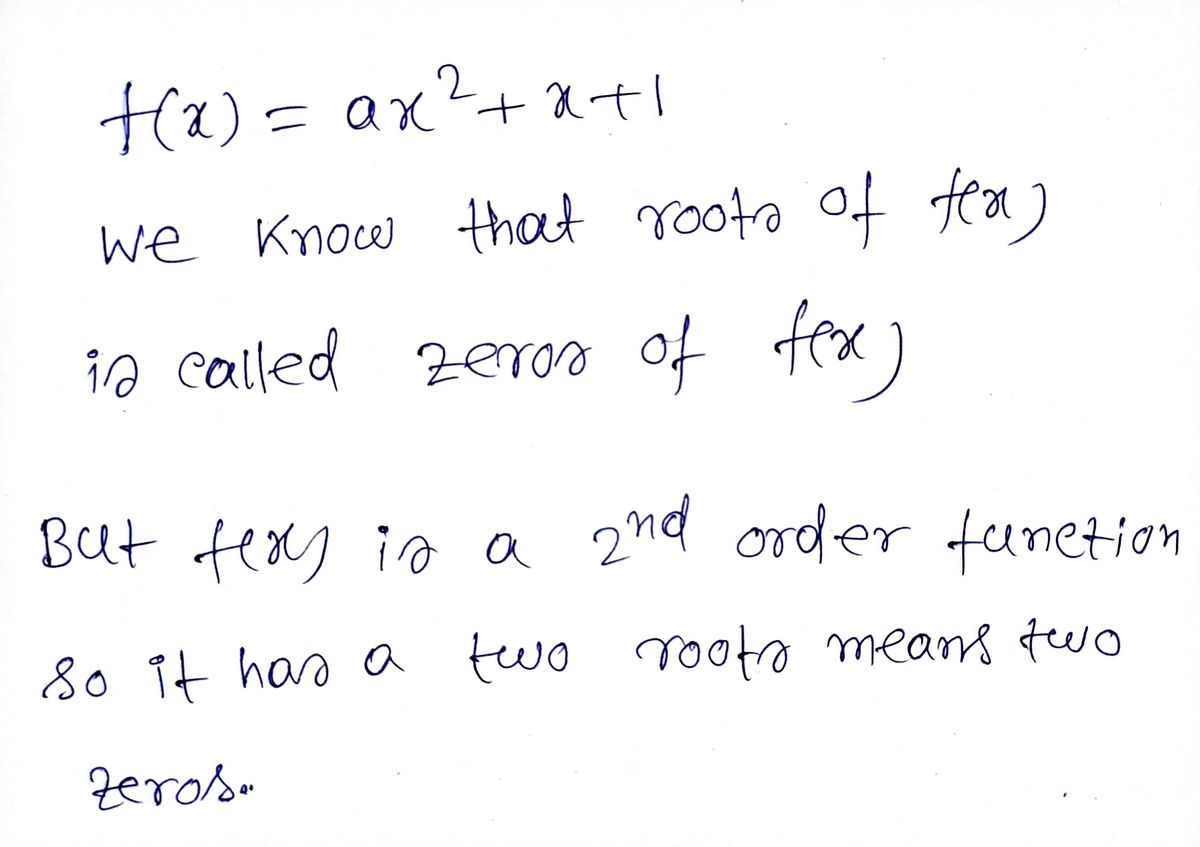 f(x) = ax² + x + 1
we know that roots of f(x)
is called zeros of f(x)
But f(x) is a 2nd order function
so it has a two roots means two
zeros..